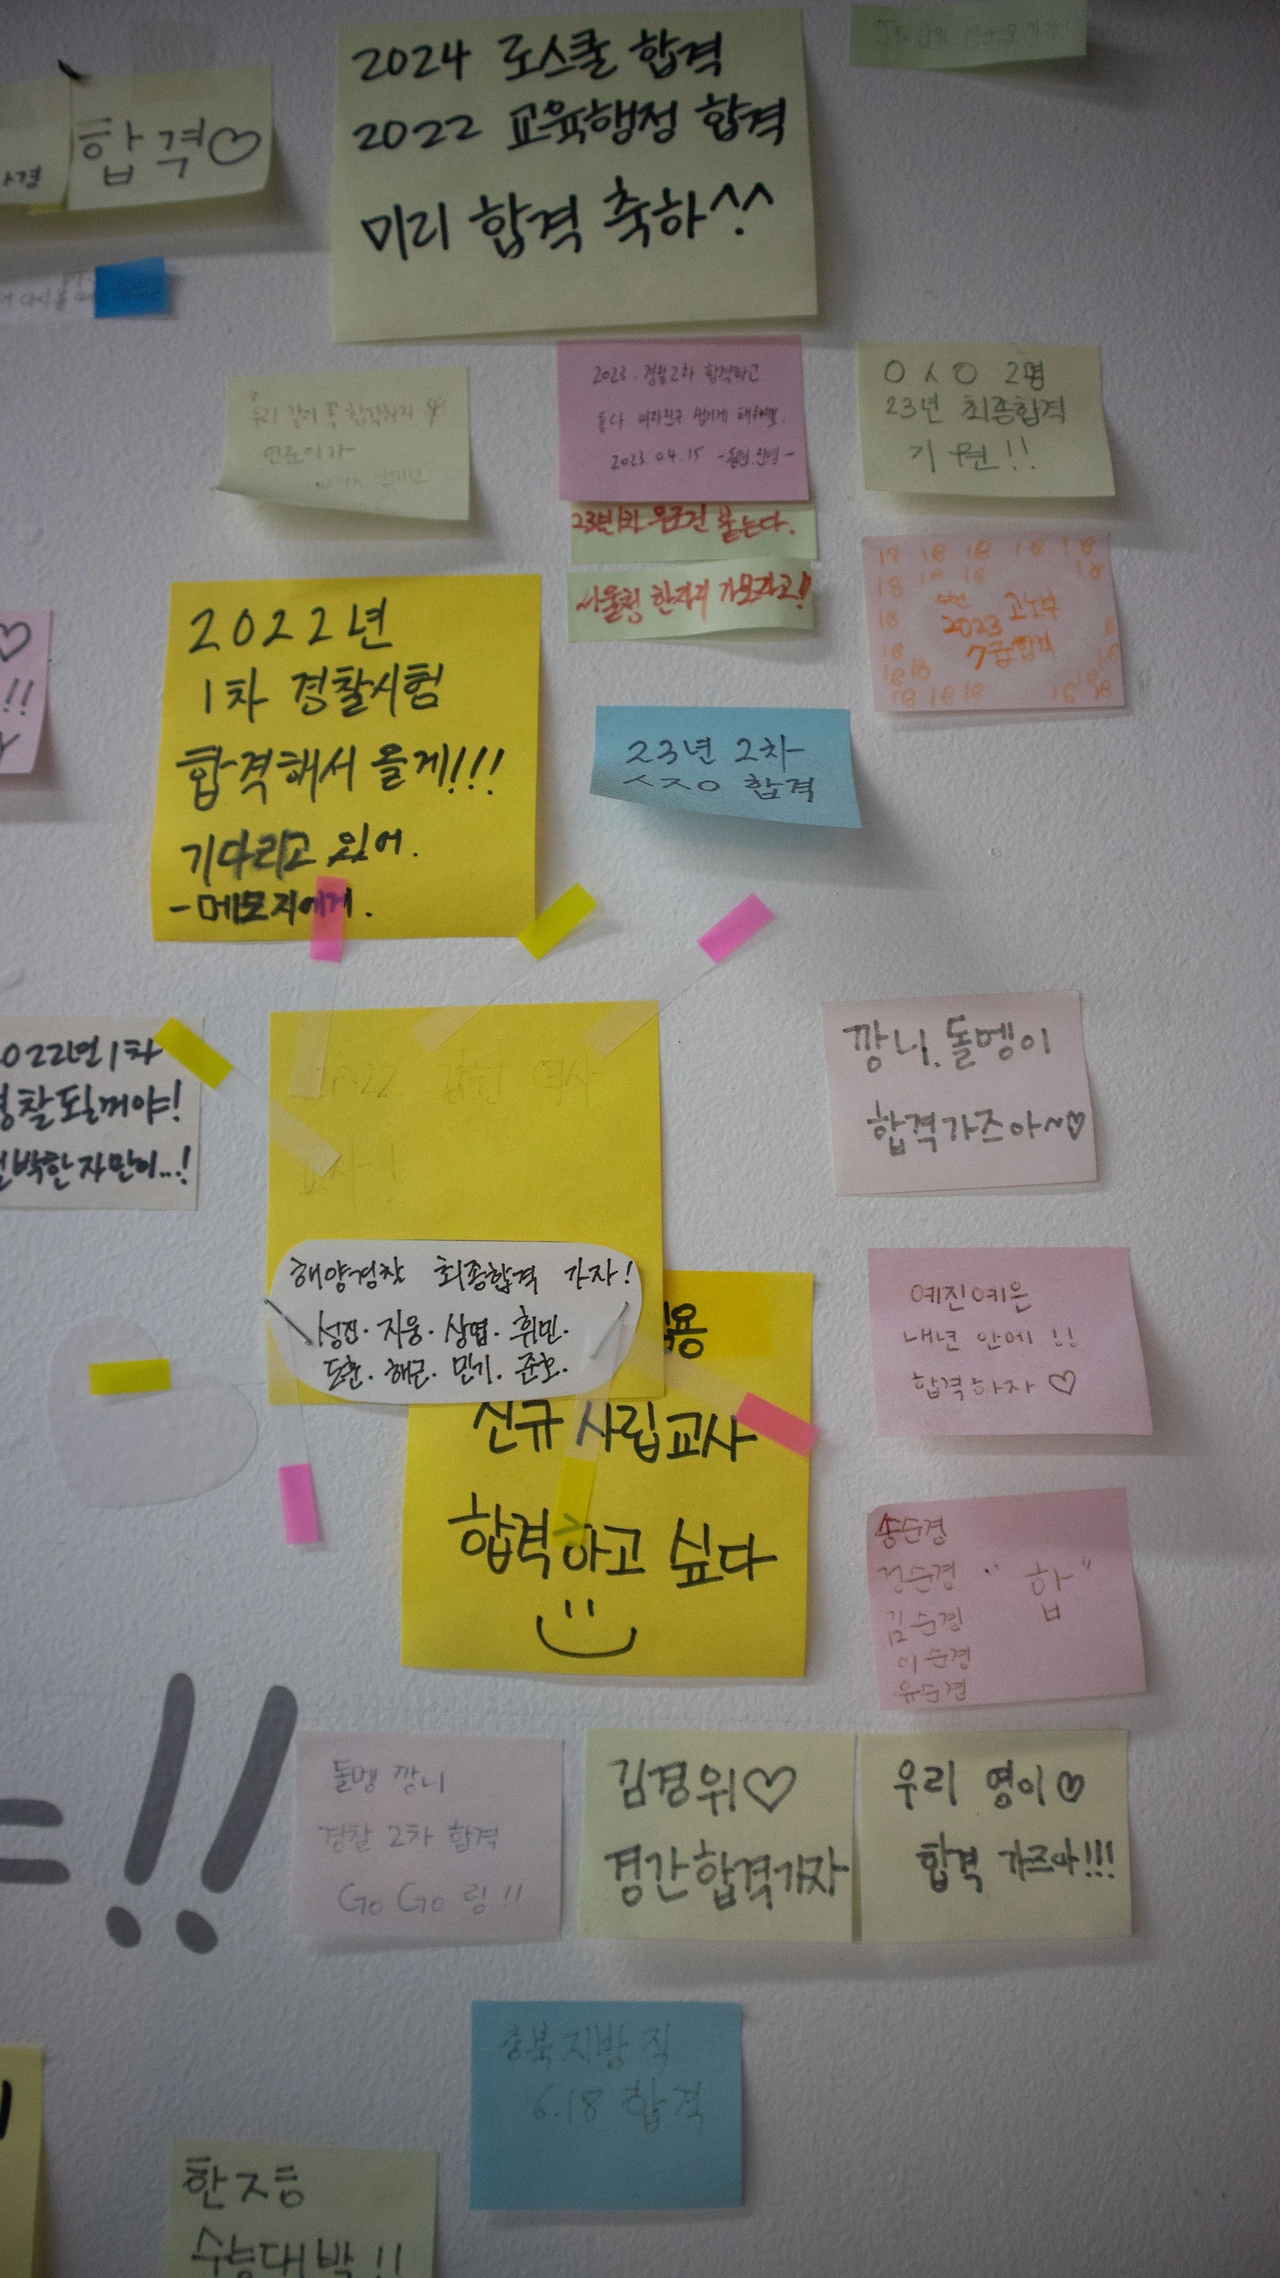 합격♡
2024 로스쿨 합격
2022 교육행정 합격
미리 합격 축하^^
우리 같이 꼭 합격하자
2023. 경찰2차 합격하고
둘다 여자친구 생기게 해주세요.
2023.04.15
ㅇㅅㅇ 2명
23년 최종합격
기원!!
23년1차 무조건 붙는다.
18 18 18 18 18
2023 고노부
7급합격
2022년
1차 경찰시험
합격해서 올게!!!
기다리고 있어.
-메모지에게.
23년 2차
ㅅㅈㅇ 합격
2022년 1차
경찰될꺼야!
자만이..!
깡니, 돌멩이
합격가즈아~♡
2022 강원 역사
교사!
해양경찰 최종합격 가자!
성진. 지웅. 상엽. 휘민.
도훈. 해근. 민기. 준호.
신규 사립교사
합격하고 싶다
예진예은
내년 안에 !!
합격하자 ♡
송순경
정순경 "합"
김순경
이순경
유순경
!!
돌멩 깡니
경찰 2차 합격
GoGo링!!
김경위♡
경간합격가자
우리 영이♡
합격 가즈아!!!
충북지방직
6.18 합격
수능대박!!